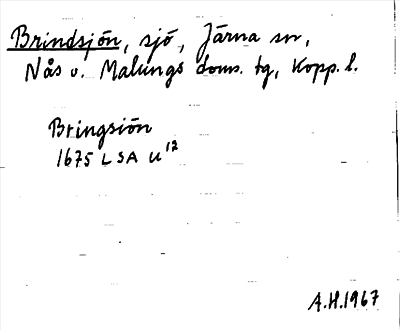 Brindsjön, sjö, Järna sn,
Nås o. Malungs doms. tg, Kopp. l.
Bringsiön
1675 LSA U12
A.H.1967